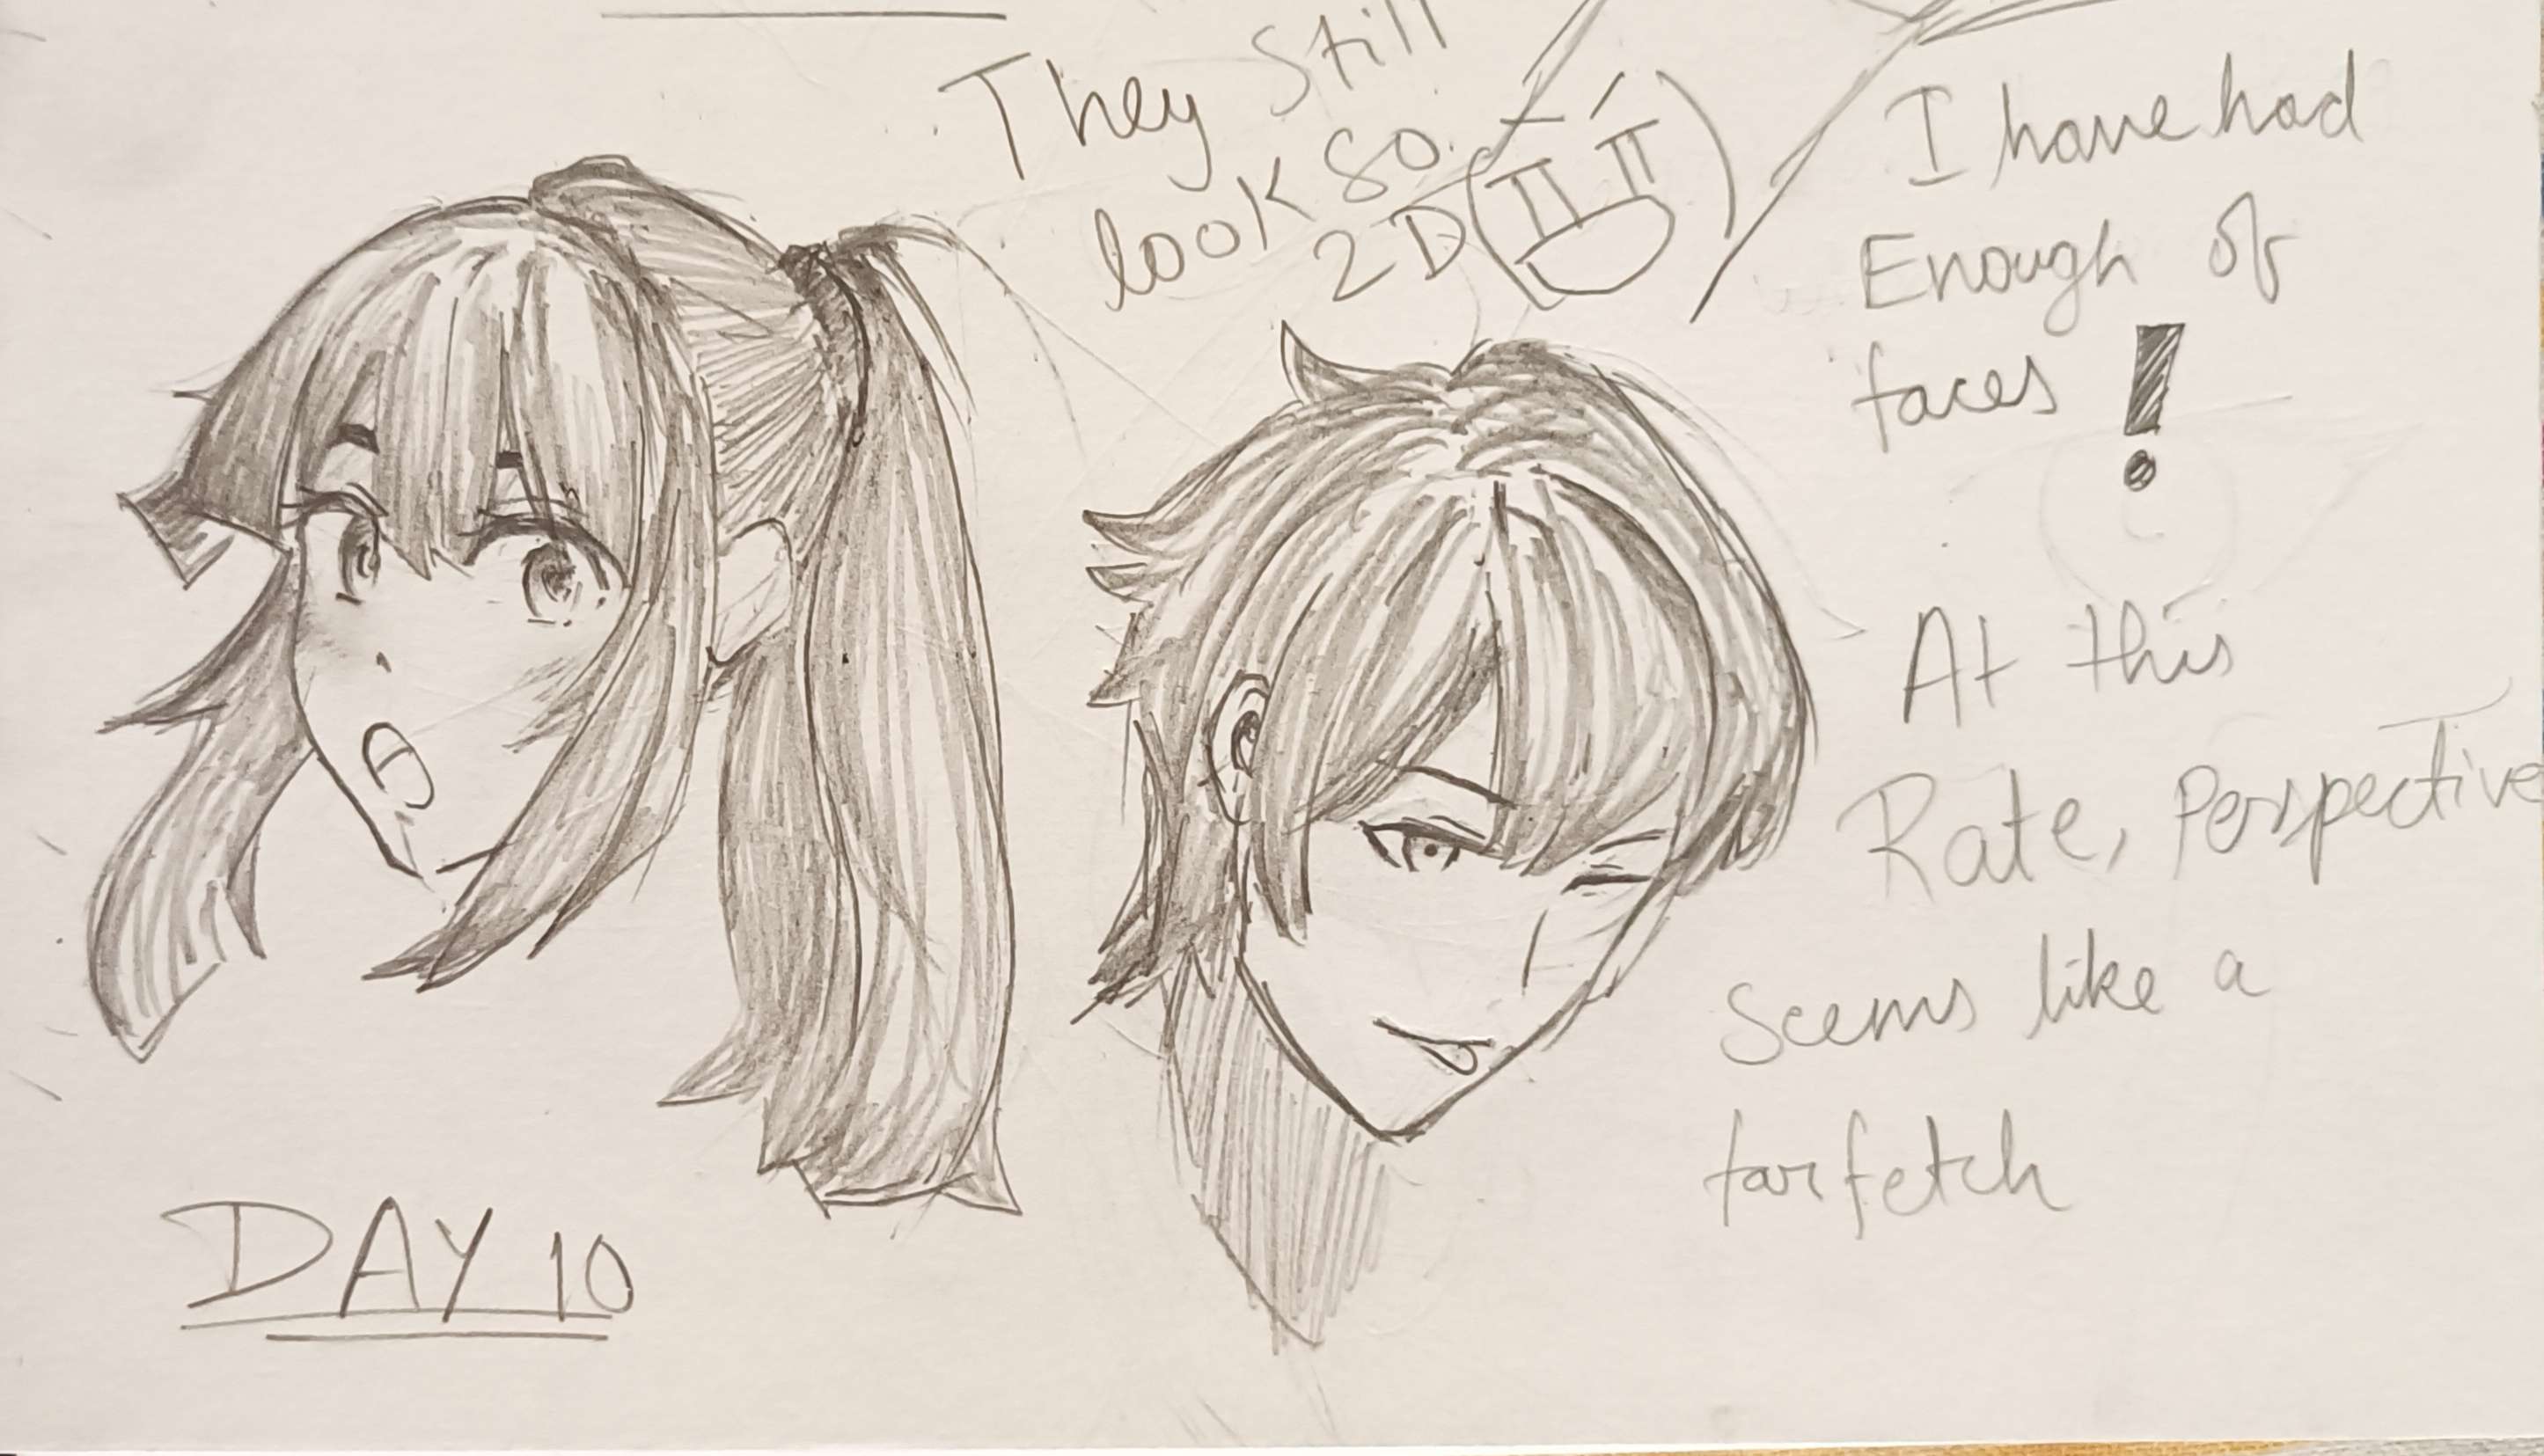 They Still
look so
2D
I have had
Enough of
faces !
At this
Rate, Perspective
Seems like a
far fetch
DAY 10